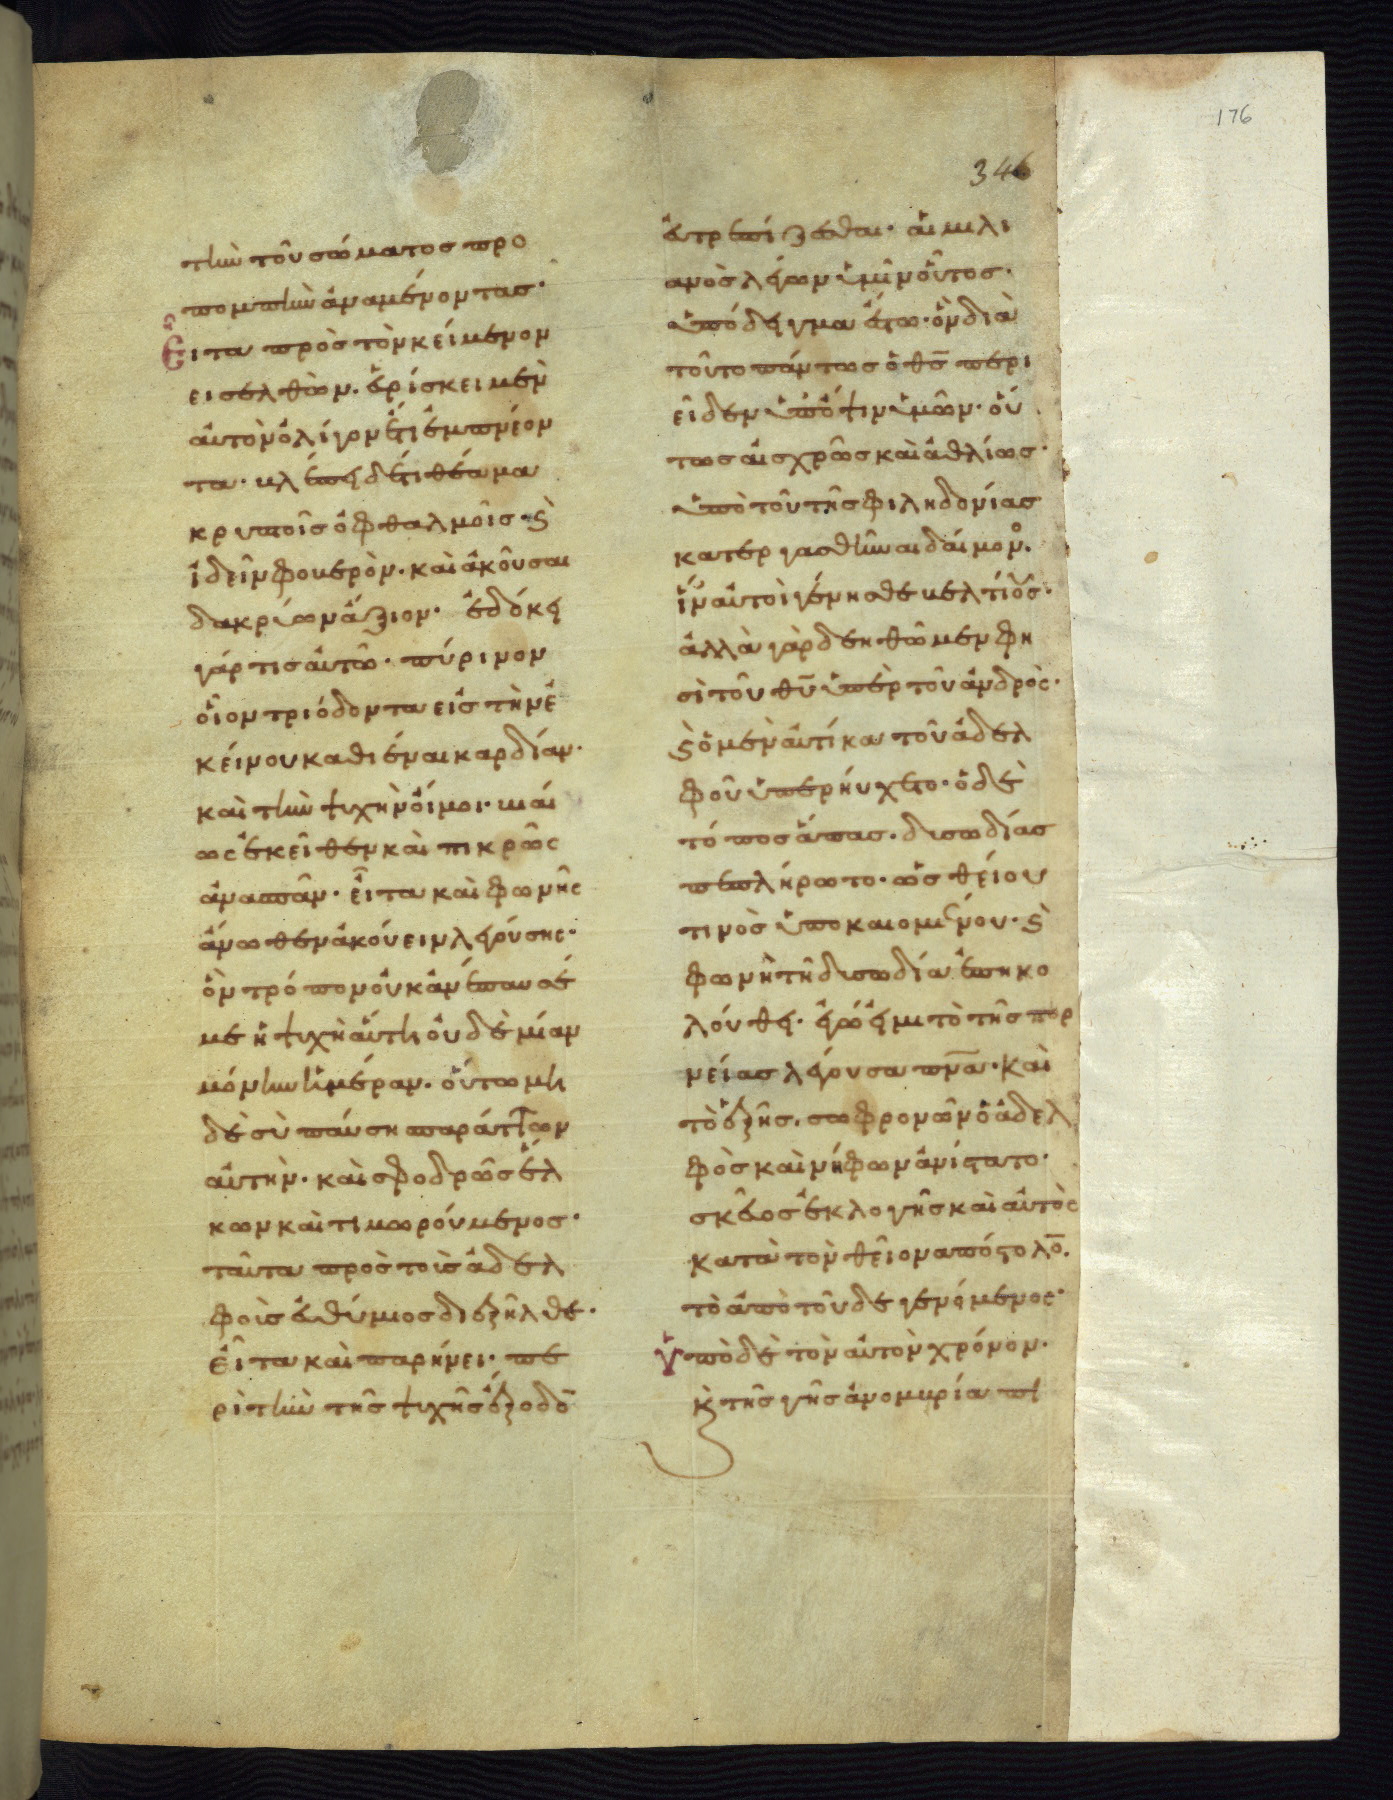 176
346
τὴν τοῦ σώματος προ
πομπὴν ἀναμένοντας·
Εἶτα πρὸς τὸν κείμενον
εἰσελθὼν. εὑρίσκει μὲν
αὐτὸν ὀλίγον ἔτι ἐμπνέον
τα· βλέπει δέ τι θέαμα
κρυπτοῖς ὀφθαλμοῖς· καὶ
ἰδεῖν φοβερὸν. καὶ ἀκοῦσαι
δακρύων ἄξιον· ἐδόκει
γάρ τις αὐτῶ· πύρινον
οἷον τριόδοντα εἰς τὴν ἐ
κείνου καθιέναι καρδίαν·
καὶ τὴν ψυχὴν οἴμοι· βιαί
ως ἐκεῖθεν καὶ πικρῶς
ἀνασπᾶν· εἶτα καὶ φωνῆς
ἄνωθεν ἀκούειν λεγούσης·
ὃν τρόπον οὐκ ἀνέπαυσέ
με ἡ ψυχὴ αὕτη οὐδὲ μίαν
μόνην ἡμέραν. οὕτω μὴ
δὲ σὺ παύση σπαράττων
αὐτὴν· καὶ σφοδρῶς ἕλ
κων καὶ τιμωρούμενος·
ταῦτα πρὸς τοῖς ἀδελ
φοῖς εὐθύμιος διεξῆλθε·
εἶτα καὶ παρήνει· πε
ρὶ τὴν τῆς ψυχῆς ἔξοδον
εὐτρεπίζεσθαι· αἰμιλι
ανὸς λέγων ὑμῖν οὗτος·
ὑπόδειγμα ἔστω· ὃν διὰ
τοῦτο πάντως ὁ θς περι
εῖδεν ὑπ' ὄψιν ὑμῶν· οὕ
τως αἰσχρῶς καὶ ἀθλίως·
ὑπὸ τοῦ τῆς φιληδονίας
κατεργασθῆναι δαίμονος.
ἵν' αὐτοὶ γένησθε βελτίους·
ἀλλὰ γὰρ δεηθῶμεν φη
σὶ τοῦ θυ ὑπὲρ τοῦ ἀνδρὸς·
καὶ ὁ μὲν αὐτίκα τοῦ ἀδελ
φοῦ ὑπερηύχετο· ὁ δὲ
τόπος ἅπας. δυσωδίας
πεπλήρωτο· ὡς θείου
τινὸς ὑποκαιομένου· καὶ
φωνὴ τῆ δυσωδία ἐπηκο
λούθει· ἐγώ εἰμι τὸ τῆς πορ
νείας λέγουσα πνα· καὶ
τὸ ἑξῆς. σωφρονῶν ὁ ἀδελ
φὸς καὶ νήφων ἀνίστατο·
σκεῦος ἐκλογῆς καὶ αὐτὸς
κατὰ τὸν θεῖον ἀπόστολον.
τὸ ἀπὸ τοῦδε γενόμενος·
Ὑπὸ δὲ τὸν αὐτὸν χρόνον·
καὶ τῆς γῆς ἀνομβρία πι